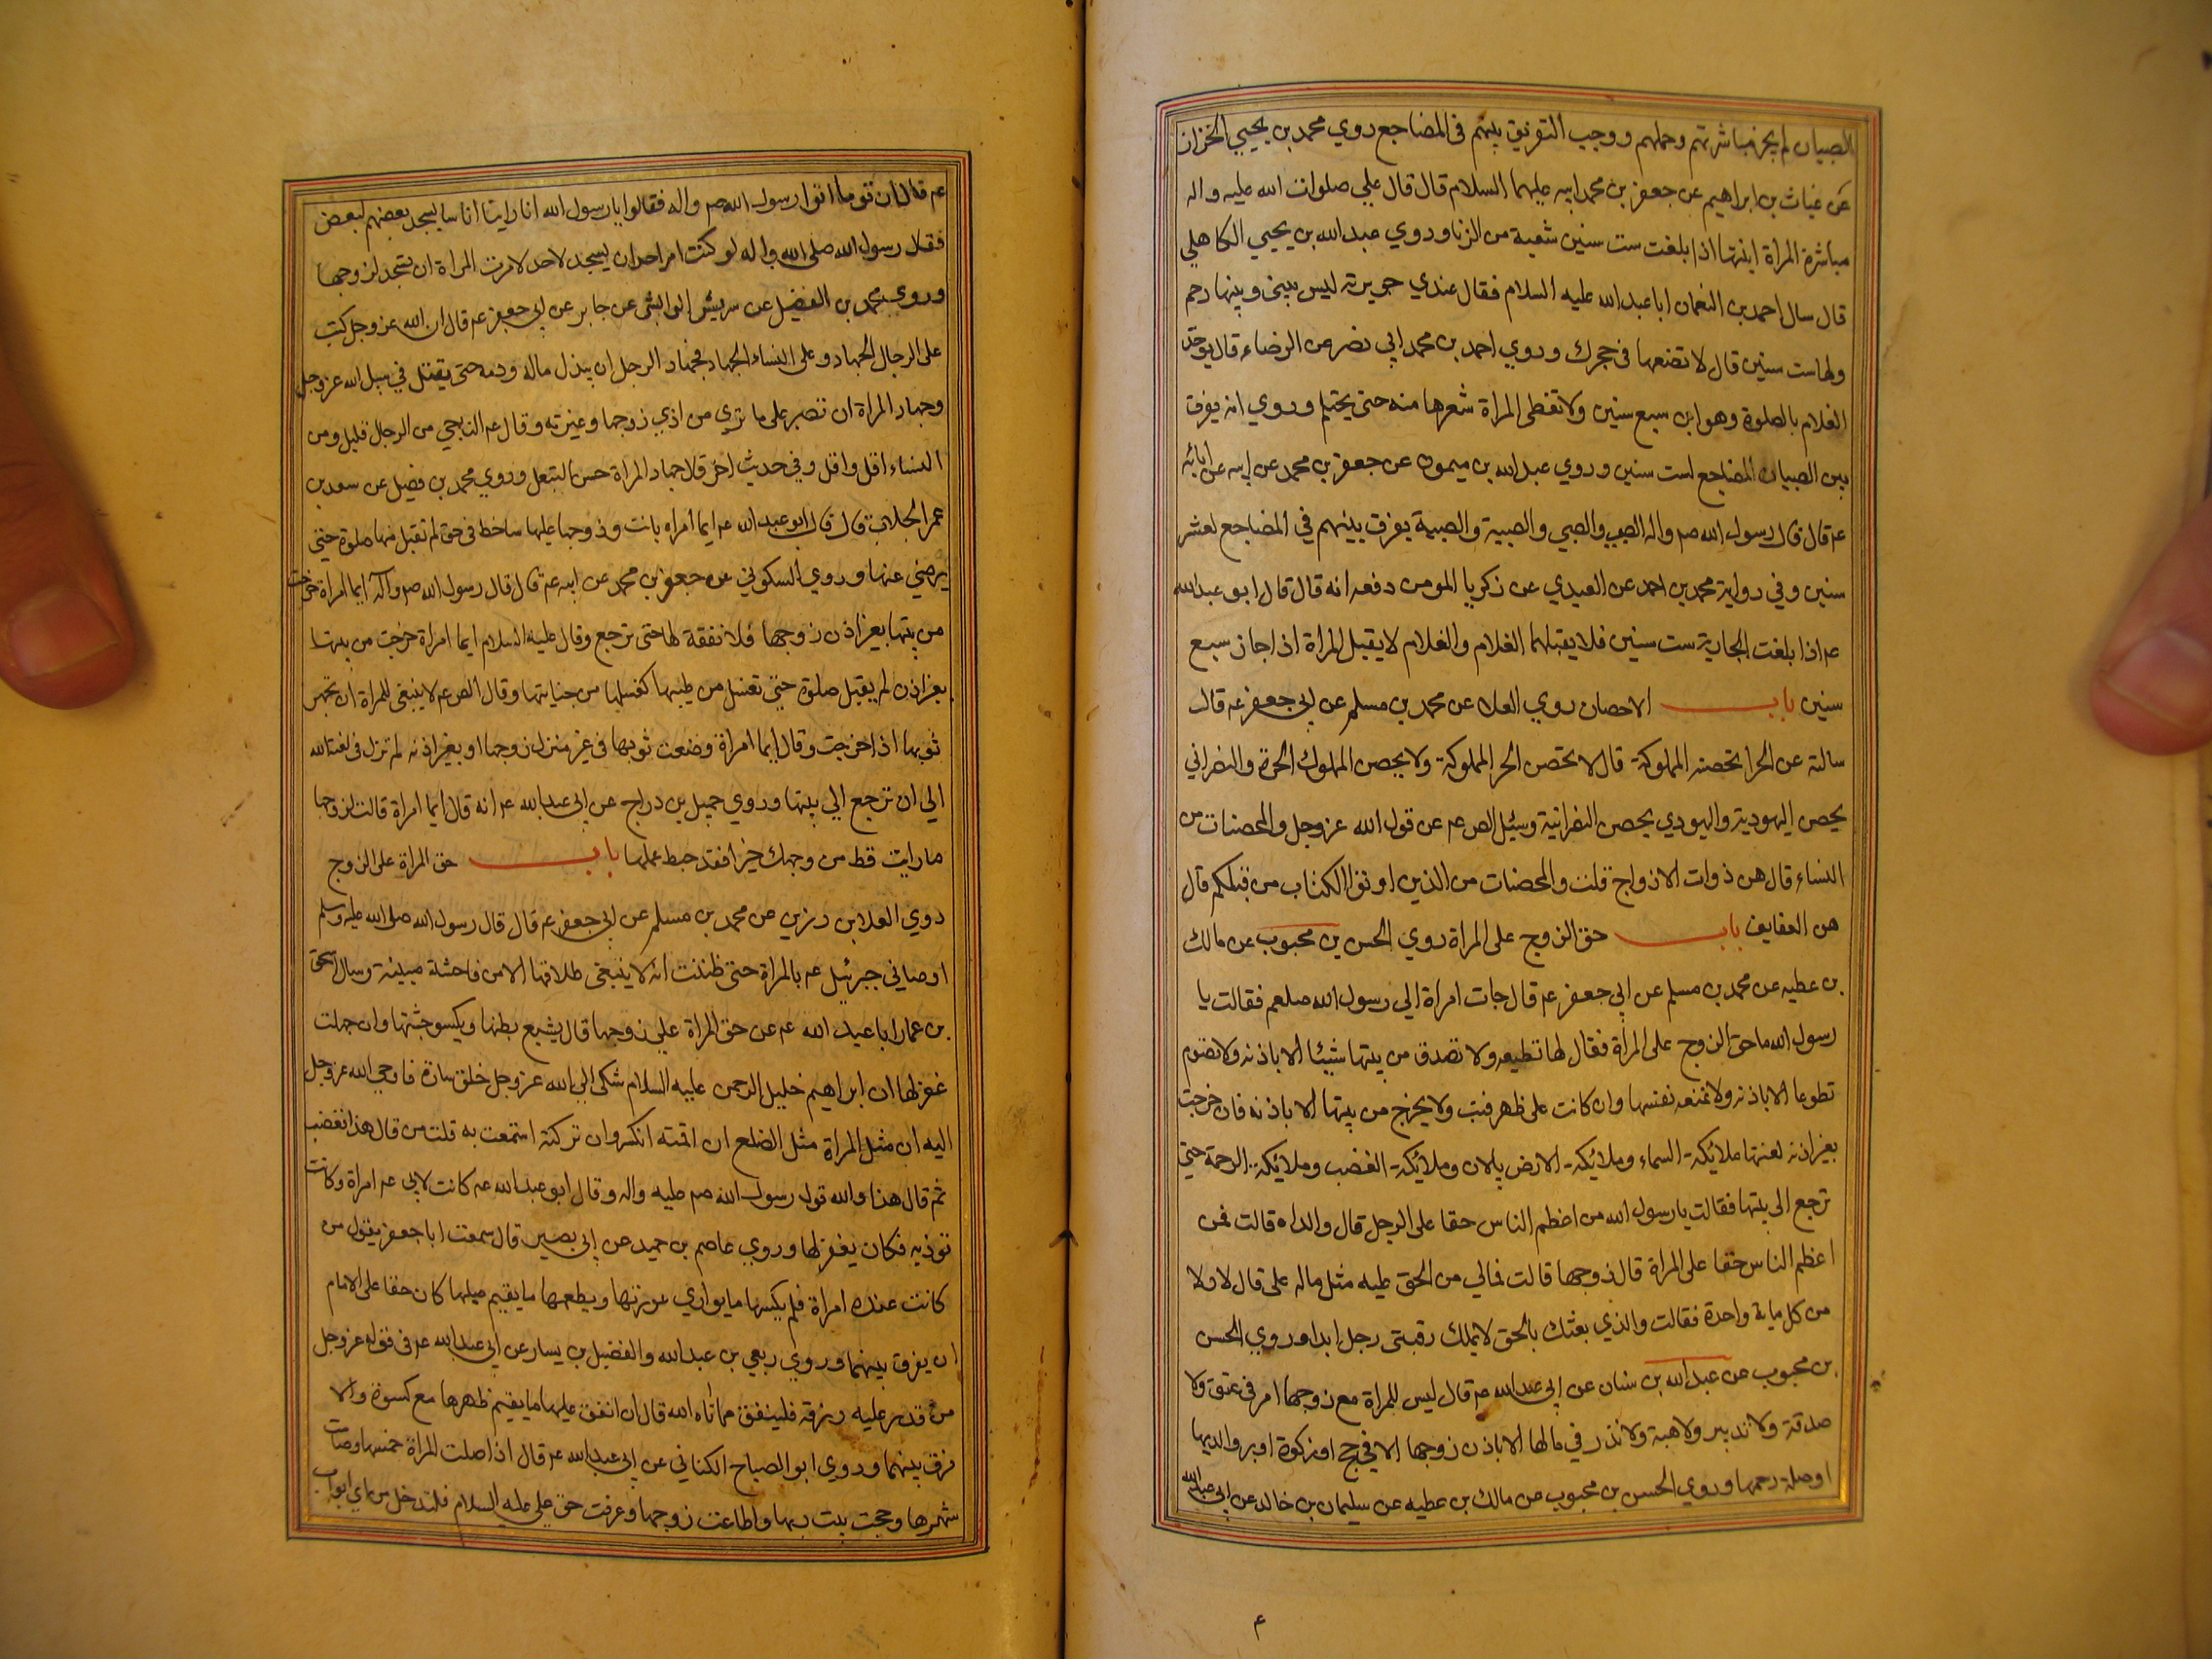 الصبيان لم يجز مباشرتهم وحملهم ووجب التفريق بينهم في المضاجع روي محمد بن يحيي الخزاز
عن غياث بن ابراهيم عن جعفر بن محمد ابيه عليهما السلام قال قال علي صلوات الله عليه واله
مباشرة المراة ابنتها اذا بلغت ست سنين شعبة من الزنا وروي عبد الله بن يحيي الكاهلي
قال سال احمد بن النعمان ابا عبد الله عليه السلام فقال عندي جويرية ليس بيني وبينها رحم
ولها ست سنين قال لا تضعها في حجرك وروي احمد بن محمد ابي نصر عن الرضاء قال يوخذ
الغلام بالصلوة وهو ابن سبع سنين ولا تغطى المراة شعرها منه حتى يحتلم وروي انه يفرق
بين الصبيان المضاجع لست سنين وروي عبد الله بن ميمون عن جعفر بن محمد عن ابيه عن ابائه
عم قال قال رسول الله صم واله الصبي والصبي والصبية والصبية يفرق بينهم في المضاجع لعشر
سنين وفي رواية محمد بن احمد عن العبيدي عن زكريا المومن رفعه انه قال قال ابو عبد الله
عم اذا بلغت الجارية ست سنين فلا يقبلهما الغلام والغلام لا يقبل المراة اذا جاز سبع
سنين باب الاحصان روي العلا عن محمد بن مسلم عن ابي جعفر عم قال
سالته عن الحر اتحصنه المملوكة قال لا تحصن الحر المملوكة ولا يحصن المملوك الحرة والنصراني
يحصن اليهودية واليهودي يحصن النصرانية وسئل الص عم عن قول الله عز وجل والمحصنات من
النساء قال هن ذوات الازواج قلت والمحصنات من الذين اوتوا الكتاب من قبلكم قال
هن العفايف باب حق الزوج على المراة روي الحسن بن محبوب عن مالك
بن عطيه عن محمد بن مسلم عن ابي جعفر عم قال جات امراة الي رسول الله صلعم فقالت يا
رسول الله ما حق الزوج على المراة فقال لها تطيعه ولا تصدق من بيتها شيئا الا باذنه ولا تصوم
تطوعا الا باذنه ولا تمنعه نفسها وان كانت على ظهر قتب ولا يخرج من بيتها الا باذنه فان خرجت
بغير اذنه لعنتها ملائكة السماء وملائكة الارض وملائكة الغضب وملائكة الرحمة حتى
ترجع الى بيتها فقالت يا رسول الله من اعظم الناس حقا على الرجل قال والداه قالت فمن
اعظم الناس حقا على المراة قال زوجها قالت فمالي من الحق عليه مثل ماله على قال لا ولا
من كل ماية واحدة فقالت والذي بعثك بالحق لا يملك رقبتى رجل ابدا وروي الحسن
بن محبوب عن عبد الله بن سنان عن ابي عبد الله عم قال ليس للمراة مع زوجها امر في عتق ولا
صدقة ولا تدبير ولا هبة ولا نذر في مالها الا باذن زوجها الا في حج او زكوة او بر والديها
او صلة رحمها وروي الحسن بن محبوب عن مالك بن عطيه عن سليمان بن خالد عن ابي عبد الله
عم قال ان قوما اتوا رسول الله صم واله فقالوا يا رسول الله انا راينا اناسا يسجد بعضهم لبعض
فقال رسول الله صلى الله واله لو كنت امر احدا ان يسجد لاحد لامرت المراة ان تسجد لزوجها
وروي محمد بن الفضيل عن الوابشى عن جابر عن ابي جعفر عم قال ان الله عز وجل كتب
على الرجال الجهاد وعلى النساء الجهاد فجهاد الرجل ان يبذل ماله ودمه حتى يقتل في سبيل الله عز وجل
وجهاد المراة ان تصبر على ما ترى من اذي زوجها وغيرته وقال عم الناجي من الرجال قليل ومن
النساء اقل واقل وفي حديث اخر قال جهاد المراة حسن التبعل وروي محمد بن فضيل عن سعد بن
عمر الجلاب قال قال ابو عبد الله عم ايما امراه باتت وزوجها عليها ساخط في حق لم تقبل منها صلوة حتى
يرضي عنها وروي السكوني عن جعفر بن محمد عن ابيه عم قال قال رسول الله صم وآله ايما امراة خرجت
من بيتها بغير اذن زوجها فلا نفقة لها حتى ترجع وقال عليه السلام ايما امراة خرجت من بيتها
بغير اذن لم يقبل صلوة حتى تغتسل من طيبها كغسلها من جنابتها وقال الص عم لا ينبغى للمراة ان تجمر
ثوبها اذا خرجت وقال ايما امراة وضعت ثوبها في غير منزل زوجها او بغير اذنه لم تزل في لعنة الله
الي ان ترجع الي بيتها وروي جميل بن دراج عن ابي عبد الله عم انه قال ايما امراة قالت لزوجها
ما رايت قط من وجهك خيرا فقد حبط عملها باب حق المراة على الزوج
روي العلا بن رزين عن محمد بن مسلم عن ابي جعفر عم قال قال رسول الله صلى الله عليه وسلم
اوصاني جبرئيل عم بالمراة حتى ظننت انه لا ينبغى طلاقها الا من فاحشة مبينة وسال اسحق
بن عمار ابا عبد الله عم عن حق المراة علي زوجها قال يشبع بطنها ويكسو جثتها وان جهلت
غفر لها ان ابراهيم خليل الرحمن عليه السلام شكى الي الله عز وجل خلق سارة فاوحي الله عز وجل
اليه ان مثل المراة مثل الضلع ان اقمته انكسر وان تركته استمتعت به قلت من قال هذا فغضب
ثم قال هذا والله قول رسول الله صم عليه واله وقال ابو عبد الله عم كانت لابي عم امراة وكانت
توذيه فكان يغفر لها وروي عاصم بن حميد عن ابي بصير قال سمعت ابا جعفر يقول من
كانت عنده امراة فلم يكسها ما يواري عورتها ويطعمها ما يقيم صلبها كان حقا على الامام
ان يفرق بينهما وروي ربعي بن عبد الله والفضيل بن يسار عن ابي عبد الله عم في قوله عز وجل
من قدر عليه رزقه فلينفق مما اتاه الله قال ان انفق عليها ما يقيم ظهرها مع كسوة والا
فرق بينهما وروي ابو الصباح الكناني عن ابي عبد الله عم قال اذا صلت المراة خمسها وصامت
شهرها وحجت بيت ربها واطاعت زوجها وعرفت حق علي عليه السلام فلتدخل من اي ابواب